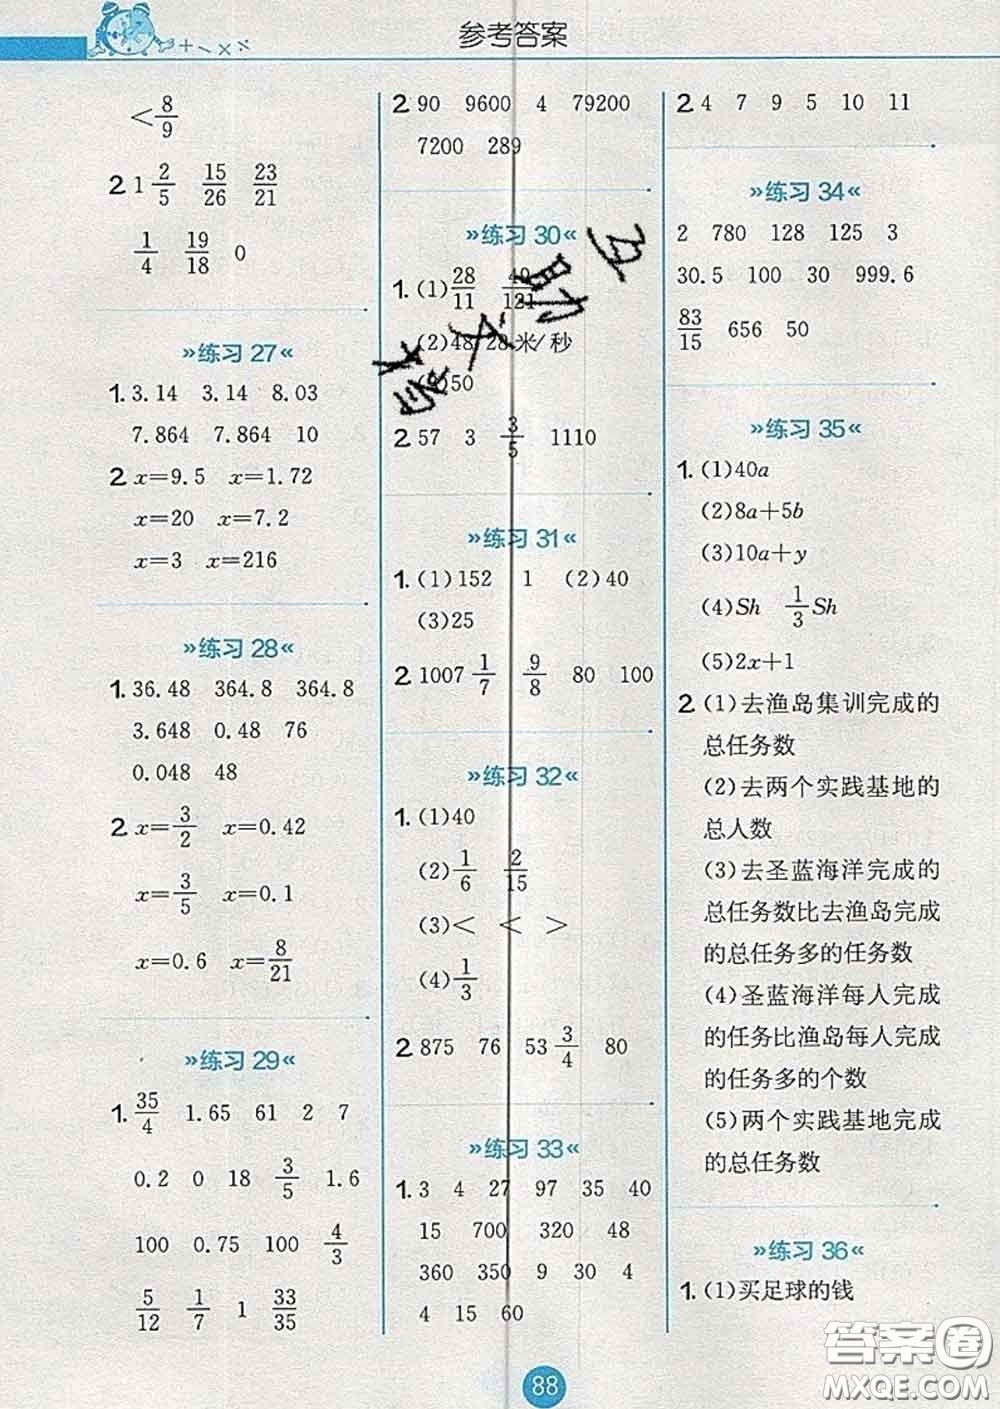 参考答案
<8/9
2. 1 2/5 15/26 23/21
1/4 19/18 0
»练习27«
1. 3.14 3.14 8.03
7.864 7.864 10
2. x=9.5 x=1.72
x=20 x=7.2
x=3 x=216
»练习28«
1. 36.48 364.8 364.8
3.648 0.48 76
0.048 48
2. x=3/2 x=0.42
x=3/5 x=0.1
x=0.6 x=8/21
»练习29«
1. 35/4 1.65 61 2 7
0.2 0 18 3/5 1.6
100 0.75 100 4/3
5/12 1/7 1 33/35
2. 90 9600 4 79200
7200 289
»练习30«
1. (1) 28/11 49/121
(2) 48 28米/秒
50
2. 57 3 3/5 1110
»练习31«
1. (1) 152 1 (2) 40
(3) 25
2. 1007 1/7 9/8 80 100
»练习32«
1. (1) 40
(2) 1/6 2/15
(3) < < >
(4) 1/3
2. 875 76 53 3/4 80
»练习33«
1. 3 4 27 97 35 40
15 700 320 48
360 350 9 30 4
4 15 60
2. 4 7 9 5 10 11
»练习34«
2 780 128 125 3
30.5 100 30 999.6
83/15 656 50
»练习35«
1. (1) 40a
(2) 8a+5b
(3) 10a+y
(4) Sh 1/3Sh
(5) 2x+1
2. (1)去渔岛集训完成的
总任务数
(2)去两个实践基地的
总人数
(3)去圣蓝海洋完成的
总任务数比去渔岛完成
的总任务多的任务数
(4)圣蓝海洋每人完成
的任务比渔岛每人完成
的任务多的个数
(5)两个实践基地完成
的总任务数
»练习36«
1. (1)买足球的钱
88
答案圈
MXQE.COM